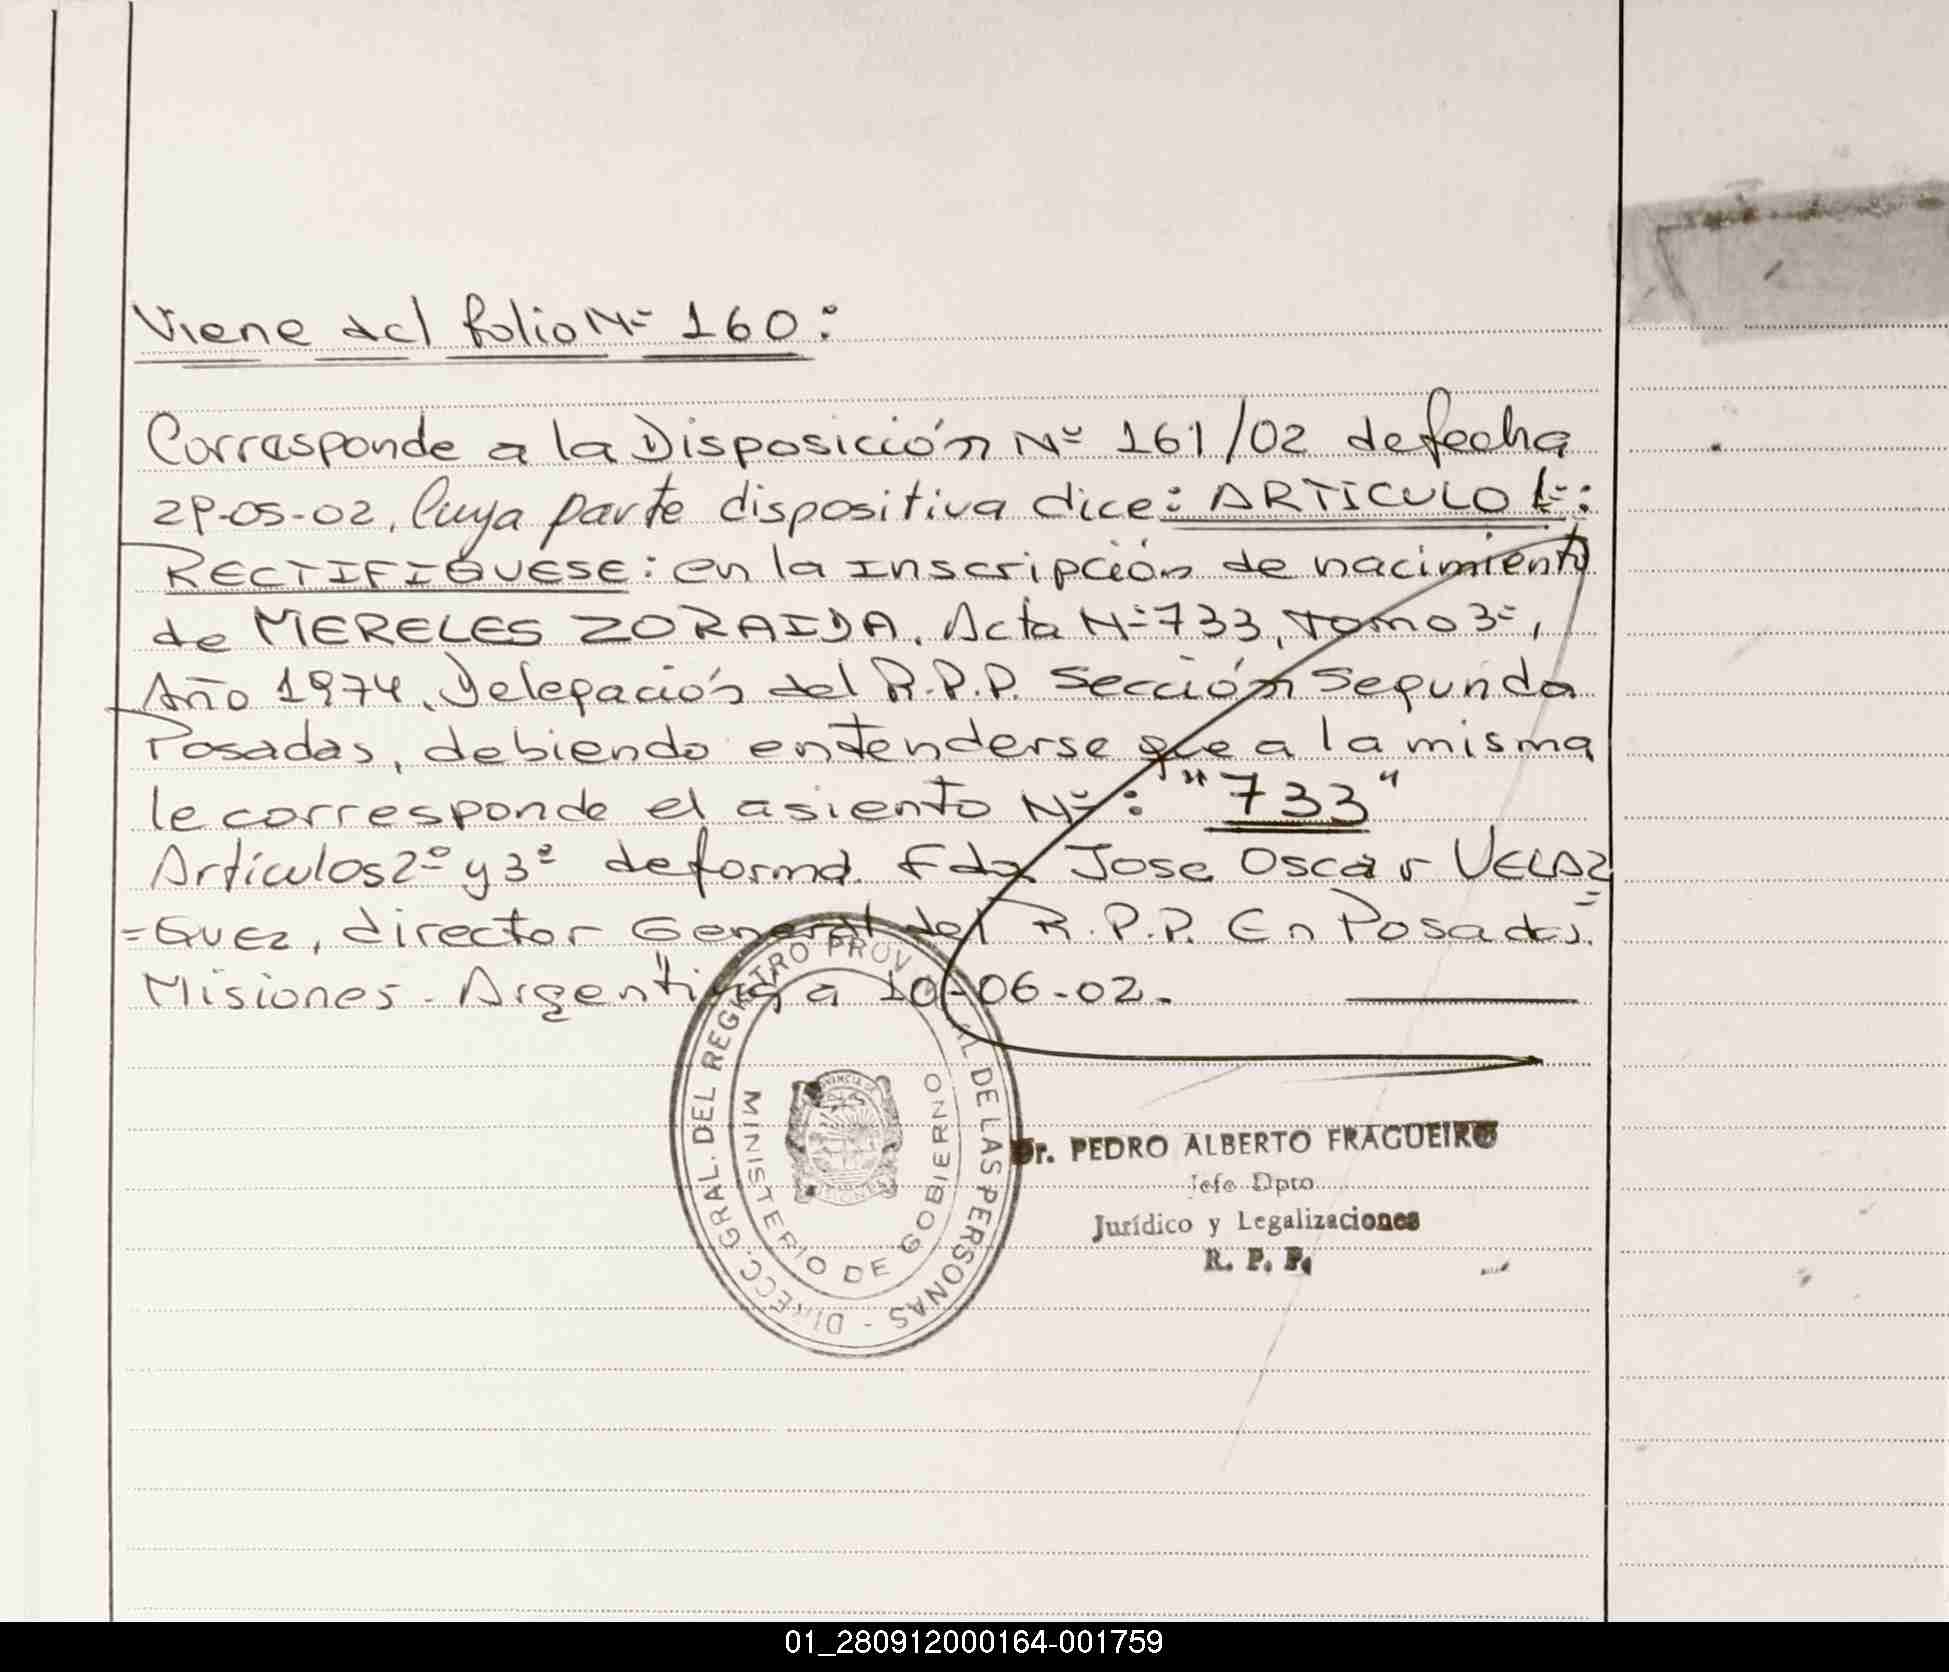 Viene del folio Nº 160:
Corresponde a la Disposición Nº 161/02 de fecha
29-05-02, Cuya parte dispositiva dice: ARTICULO 1º:
RECTIFIQUESE: en la inscripción de nacimiento
de MERELES ZORAIDA. Acta Nº 733, Tomo 3º,
Año 1974, Delegación del R.P.P. Sección Segunda
Posadas, debiendo entenderse que a la misma
le corresponde el asiento Nº: "733"
Artículos 2º y 3º de forma. Fdo. Jose Oscar VELAZ
=QUEZ, director General del R.P.P. En Posadas.
Misiones - Argentina, a 10-06-02.
DIRECC. GRAL. DEL REGISTRO PROVINCIAL DE LAS PERSONAS -
MINISTERIO DE GOBIERNO
PROVINCIA DE
MISIONES
Dr. PEDRO ALBERTO FRAGUEIRO
Jefe Dpto
Jurídico y Legalizaciones
R. P. P.
01_280912000164-001759